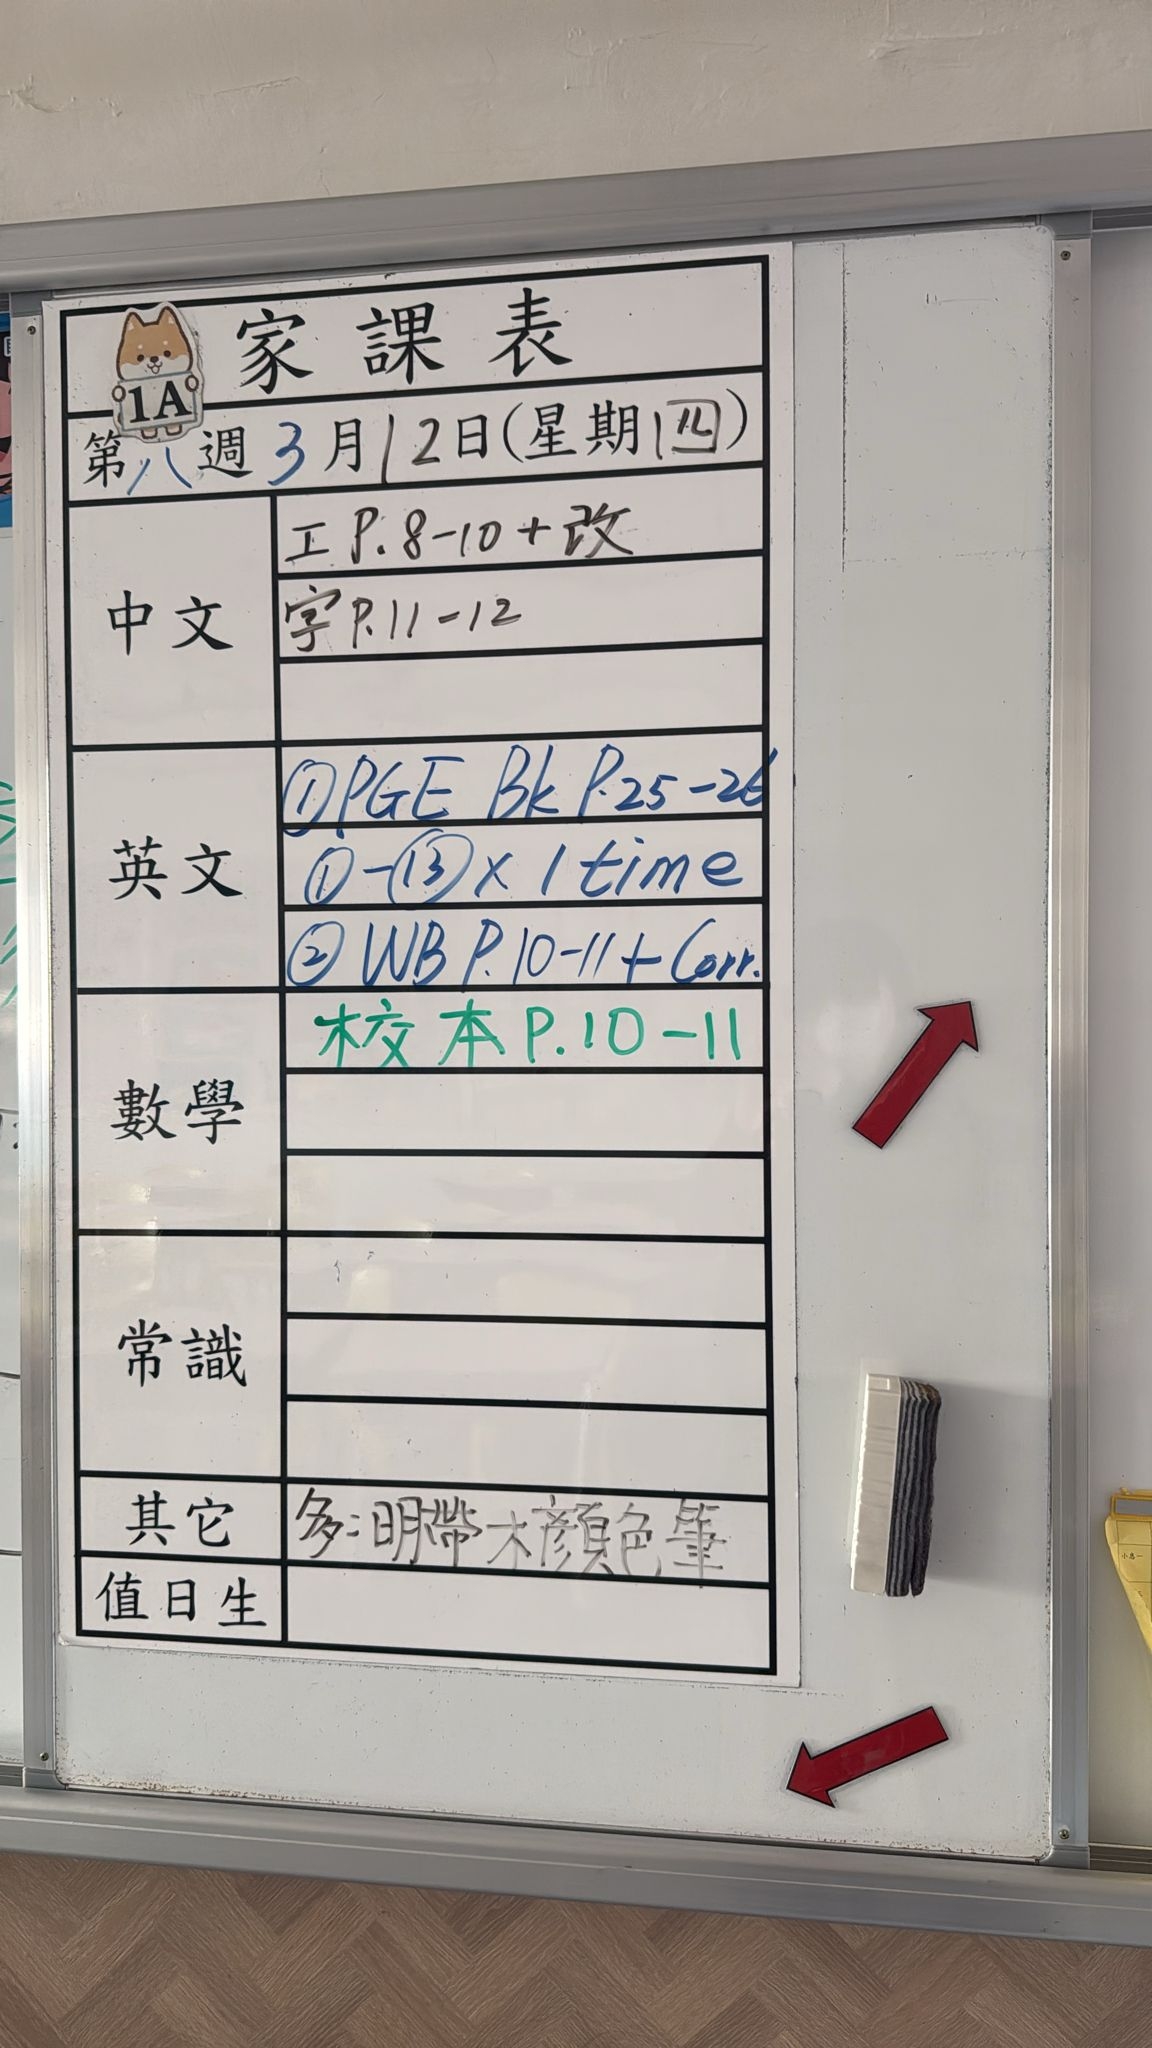 家課表
1A
第八週3月12日(星期四)
中文
工P.8-10+改
字P.11-12
英文
①PGE Bk P.25-26
①-⑬x1time
②WB P.10-11+Corr.
數學
校本P.10-11
常識
其它
多:明帶木顏色筆
值日生